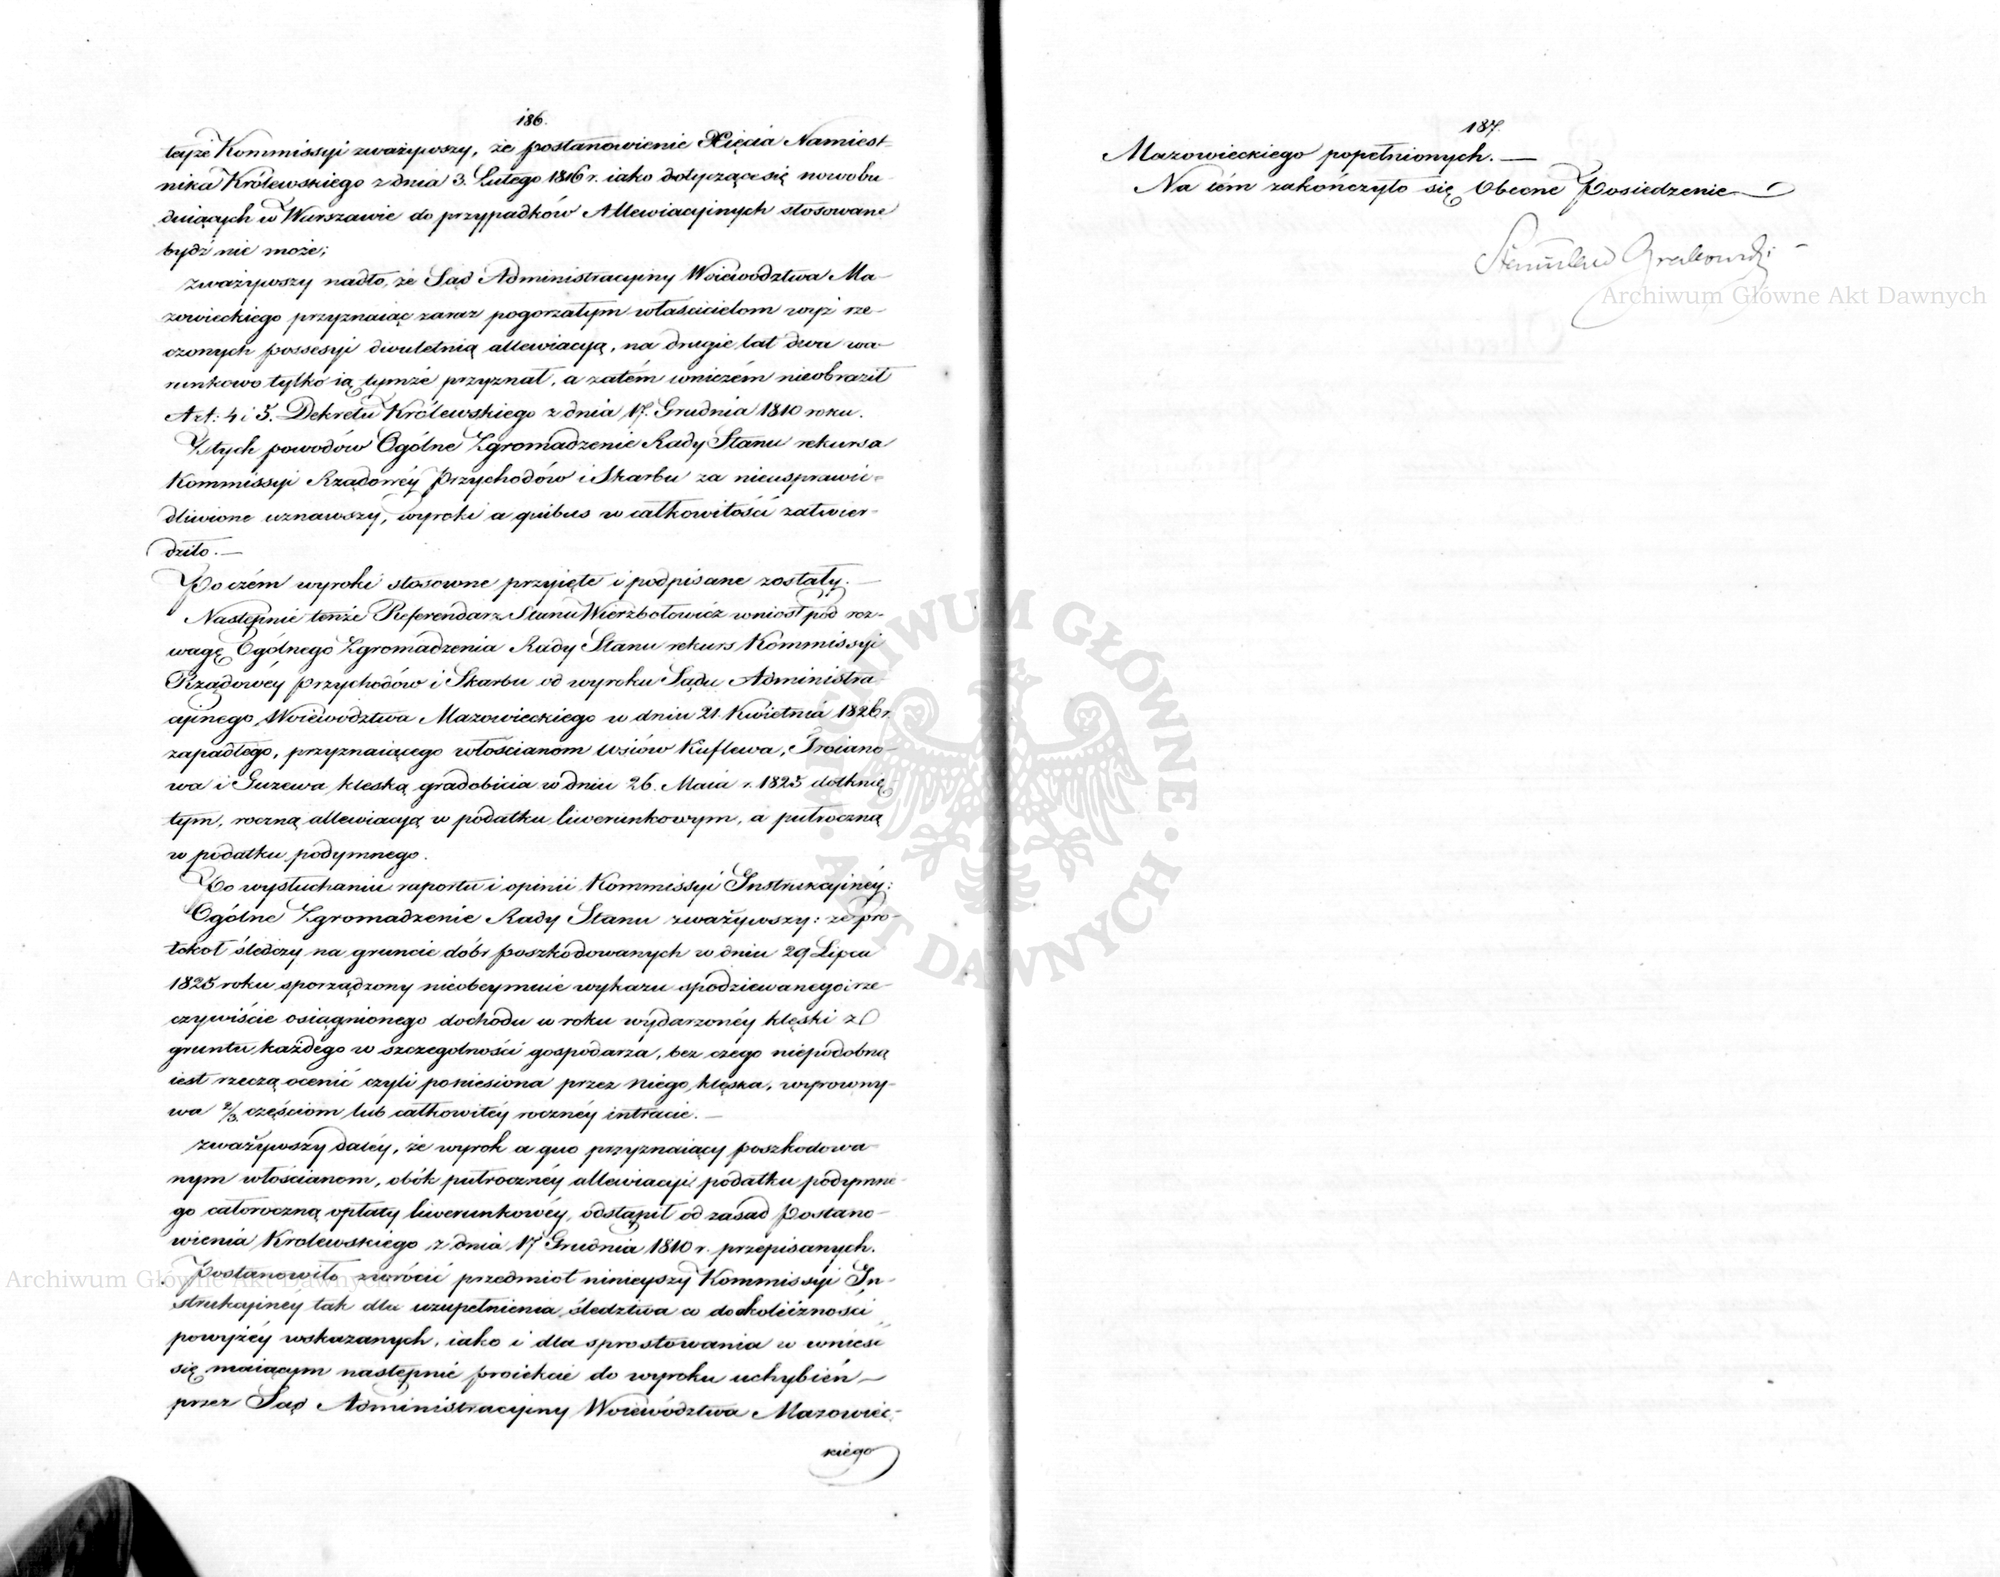 186.
teyże Kommissyi zważywszy, że postanowienie Xięcia Namiest-
nika Królewskiego z dnia 3. Lutego 1816 r. iako dotyczące się nowobu-
duiących w Warszawie do przypadków Allewiacyinych stosowane
bydź nie może;
zważywszy nadto, że Sąd Administracyiny Woiewództwa Ma-
zowieckiego przyznaiąc zaraz pogorzałym właścicielom wyż rze-
czonych possesyi dwuletnią allewiacyą, na drugie lat dwa wa-
runkowo tylko ią tymże przyznał, a zatém wniczém nieobraził
Art: 4 i 5. Dekretu Królewskiego z dnia 17. Grudnia 1810 roku.
Z tych powodów Ogólne Zgromadzenie Rady Stanu rekursa
Kommissyi Rządowéy Przychodów i Skarbu za nieusprawie-
dliwione uznawszy, wyroki a quibus w całkowitości zatwier-
dziło. —
Po czém wyroki stosowne przyięte i podpisane zostały. —
Następnie tenże Referendarz Stanu Wierzbołowicz wniósł pod roz-
wagę Ogólnego Zgromadzenia Rady Stanu rekurs Kommissyi
Rządowéy Przychodów i Skarbu od wyroku Sądu Administra-
cyinego Woiewództwa Mazowieckiego w dniu 21. Kwietnia 1826 r.
zapadłego, przyznaiącego włościanom wsiów Kuflewa, Troiano-
wa i Guzewa klęską gradobicia w dniu 26. Maia r. 1825 dotknię-
tym, roczną allewiacyą w podatku liwerunkowym, a półroczną
w podatku podymnego.
Po wysłuchaniu raportu i opinii Kommissyi Instrukcyinéy:
Ogólne Zgromadzenie Rady Stanu zważywszy: że pro-
tokół śledczy na gruncie dóbr poszkodowanych w dniu 29 Lipca
1825 roku sporządzony nieobeymuie wykazu spodziewanego i rze-
czywiście osiągnionego dochodu w roku wydarzonéy klęski z
gruntu każdego w szczególności gospodarza, bez czego niepodobną
iest rzeczą ocenić czyli poniesiona przez niego klęska, wyrowny-
wa 2/3 częściom lub całkowitéy rocznéy intracie. —
zważywszy daléy, że wyrok a quo przyznaiący poszkodowa-
nym włościanom, obók półrocznéy allewiacyi podatku podymne-
go całoroczną opłaty liwerunkowéy, odstąpił od zasad Postano-
wienia Królewskiego z dnia 17 Grudnia 1810 r. przepisanych.
Postanowiło zwrócić przedmiot ninieyszy Kommissyi In-
strukcyinéy tak dla uzupełnienia śledztwa co do okoliczności
powyżéy wskazanych, iako i dla sprostowania w wnieść
się maiącym następnie proiekcie do wyroku uchybień —
przez Sąd Administracyiny Woiewództwa Mazowiec-
kiego
187.
Mazowieckiego popełnionych. —
Na tém zakończyło się Obecne Posiedzenie —
Stanisław Grabowski
Archiwum Główne Akt Dawnych
Archiwum Główne Akt Dawnych
ARCHIWUM GŁÓWNE · AKT DAWNYCH ·